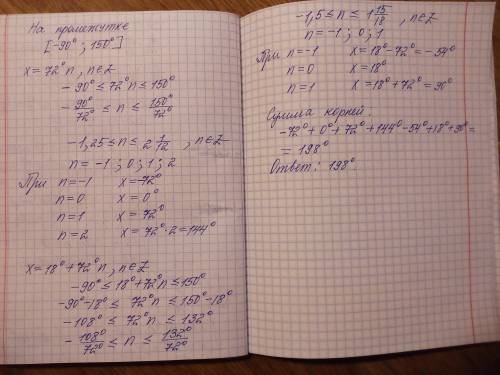 На промежутке
[-90°; 150°]
x = 72°n, n∈Z
-90° ≤ 72°n ≤ 150°
-90°/72° ≤ n ≤ 150°/72°
-1,25 ≤ n ≤ 2 1/12, n∈Z
n = -1; 0; 1; 2
При n=-1 x=-72°
n=0 x=0°
n=1 x=72°
n=2 x=72°·2=144°
x=18°+72°n, n∈Z
-90° ≤ 18°+72°n ≤ 150°
-90°-18° ≤ 72°n ≤ 150°-18°
-108° ≤ 72°n ≤ 132°
-108°/72° ≤ n ≤ 132°/72°
-1,5 ≤ n ≤ 1 15/18, n∈Z
n = -1; 0; 1
При n=-1 x=18°-72°=-54°
n=0 x=18°
n=1 x=18°+72°=90°
Сумма корней
-72°+0°+72°+144°-54°+18°+90°=
= 198°
Ответ: 198°